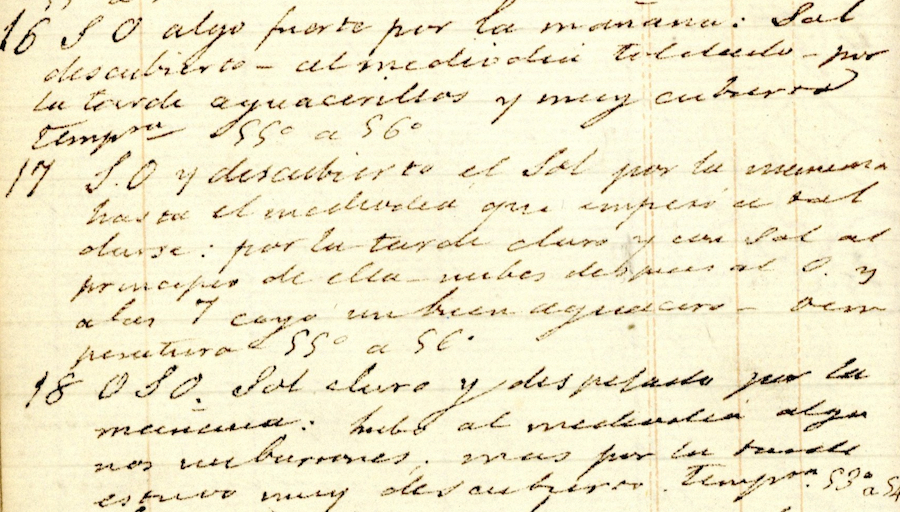 16 S O algo fuerte por la mañana: Sol
descubierto - al mediodia toldado - por
la tarde aguacerillos y muy cubierto
Tempra 55° a 56°
17 S.O y descubierto el Sol por la manana
hasta el mediodia que empesó a tol
darse: por la tarde claro y con Sol al
principio de ella - nubes despues al O. y
a las 7 cayo un buen aguacero - Tem
peratura 55° a 56°
18 O S O. Sol claro y despejado por la
mañana: hubo al mediodia algu
nos nubarrones; mas por la tarde
estuvo muy descubierto. Tempra. 53° a 54